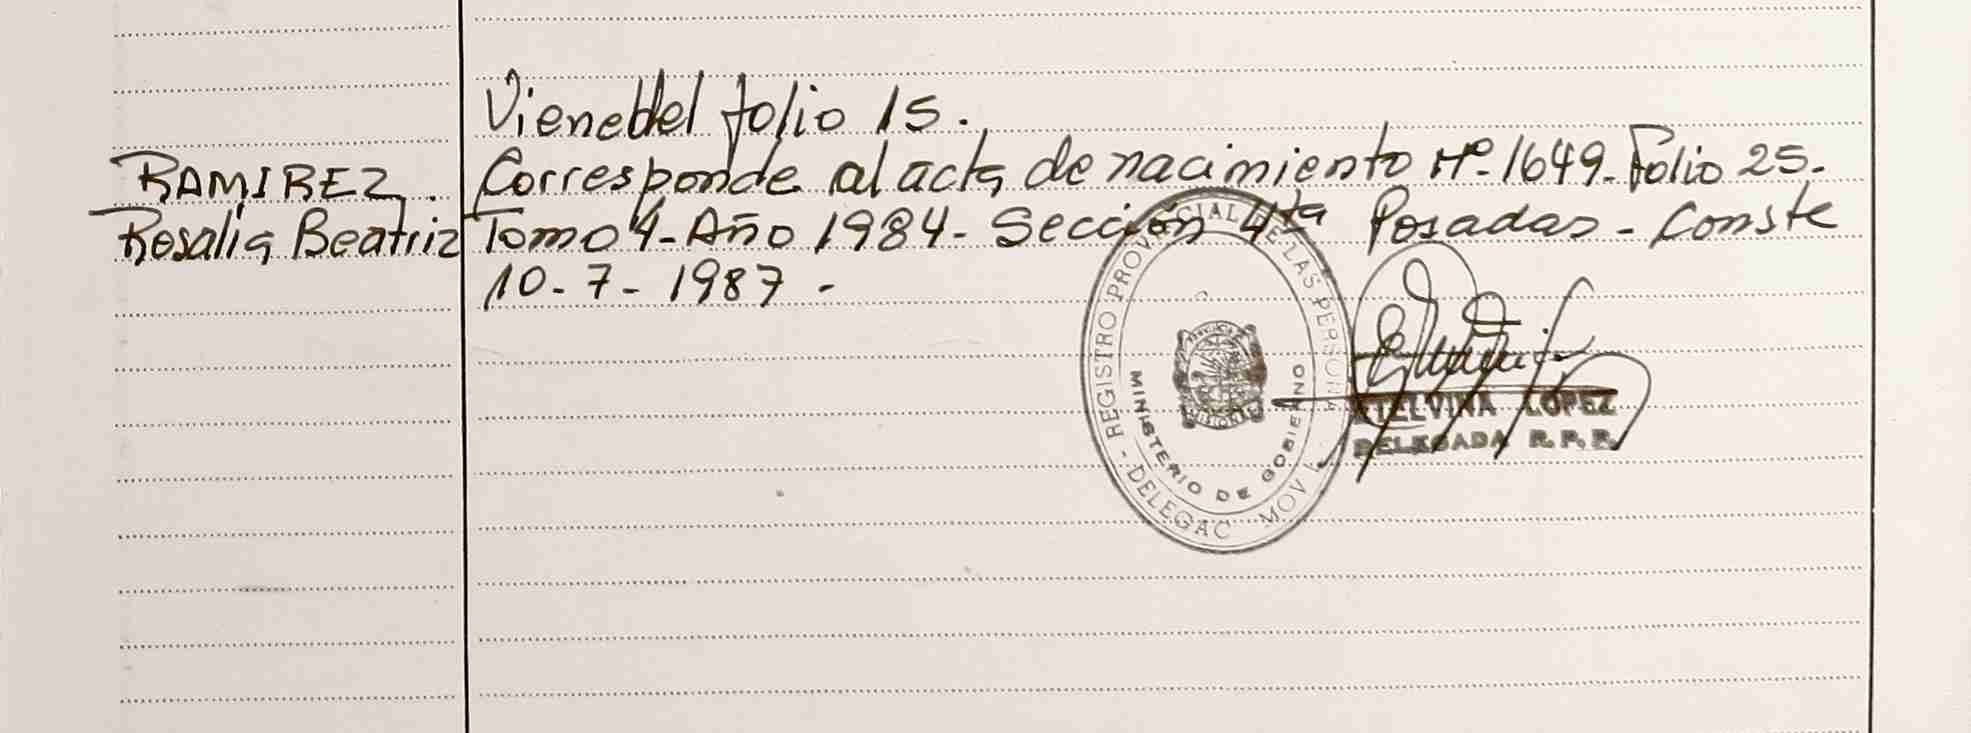 Viene del folio 15.
RAMIREZ Corresponde al acta de nacimiento Nº-1649-Folio 25.
Rosalia Beatriz Tomo 4-Año 1984- Sección 4ta Posadas - Conste
10-7-1987-
REGISTRO PROVINCIAL DE LAS PERSONAS - DELEGAC MOVIL
MINISTERIO DE GOBIERNO
ETELVINA LOPEZ
DELEGADA R.P.P.